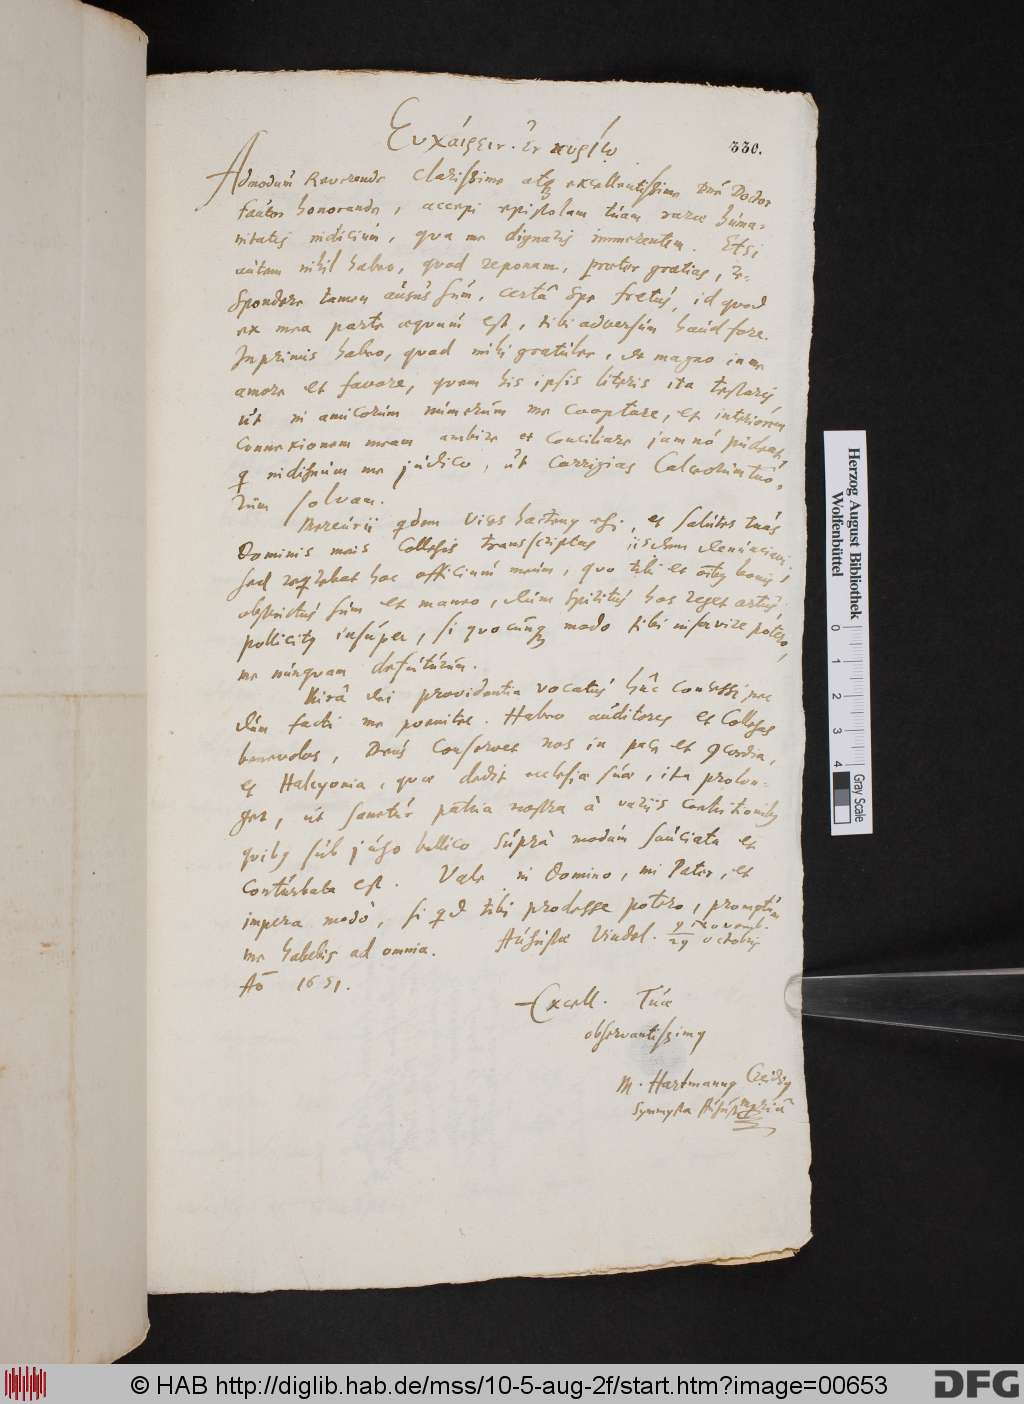 Ευχάιρειν. Ἐν κυρίῳ
330.
Admodum Reverende Clarissime atq excellentissime Dne Doctor
fautor honorande, accepi epistolam tuam raræ huma-
nitatis indicium, qua me dignaris immerentem. Etsi
autem nihil habeo, quod reponam, præter gratias, re-
spondere tamen ausus sum, certâ spe fretus, id quod
ex mea parte æquum est, tibi adversum haud fore.
Inprimis habeo, quod mihi gratuler, de magno in me
amore et favore, quem his ipsis literis ita testaris
ut in amicorum numerum me cooptare, et interiorem
connexionem meam ambire et conciliare jam nō pudeat,
q indignum me judico, ut corrigias calceorum tuo-
rum solvam.
Mercurii qdem vices hactenq egi, et salutes tuas
Dominis meis Collegis transscriptas iisdem denunciavi,
sed reqrebat hoc officium meum, quo tibi et oīibq bonis,
obstrictus sum et maneo, dum spiritus hos reget artus,
pollicitq insuper, si quocunq modo tibi inservire potero,
me nunquam defuturum.
Mirâ dei providentia vocatus huc concessi nec
dum facti me poenitet. Habeo auditores et Collegas
benevolos, Deus conservet nos in pace et qcordia,
et Halcyonia, quæ dedit ecclesiæ suæ, ita prolon-
get, ut sanetur patria nostra à variis
quibq sub jugo bellico supra modum sauciata et
conturbata est. Vale in Domino, mi Pater, et
impera modò, si qd tibi prodesse potero, promptum
me habebis ad omnia. Augustæ Vindel. 9 Novemb.
29 octobris
Aō 1651.
Excell. Tuæ
observantissimq
M. Hartmannq Creidiq
Symmysta
Herzog August Bibliothek
Wolfenbüttel
0 1 2 3 4
Gray Scale
© HAB http://diglib.hab.de/mss/10-5-aug-2f/start.htm?image=00653
DFG